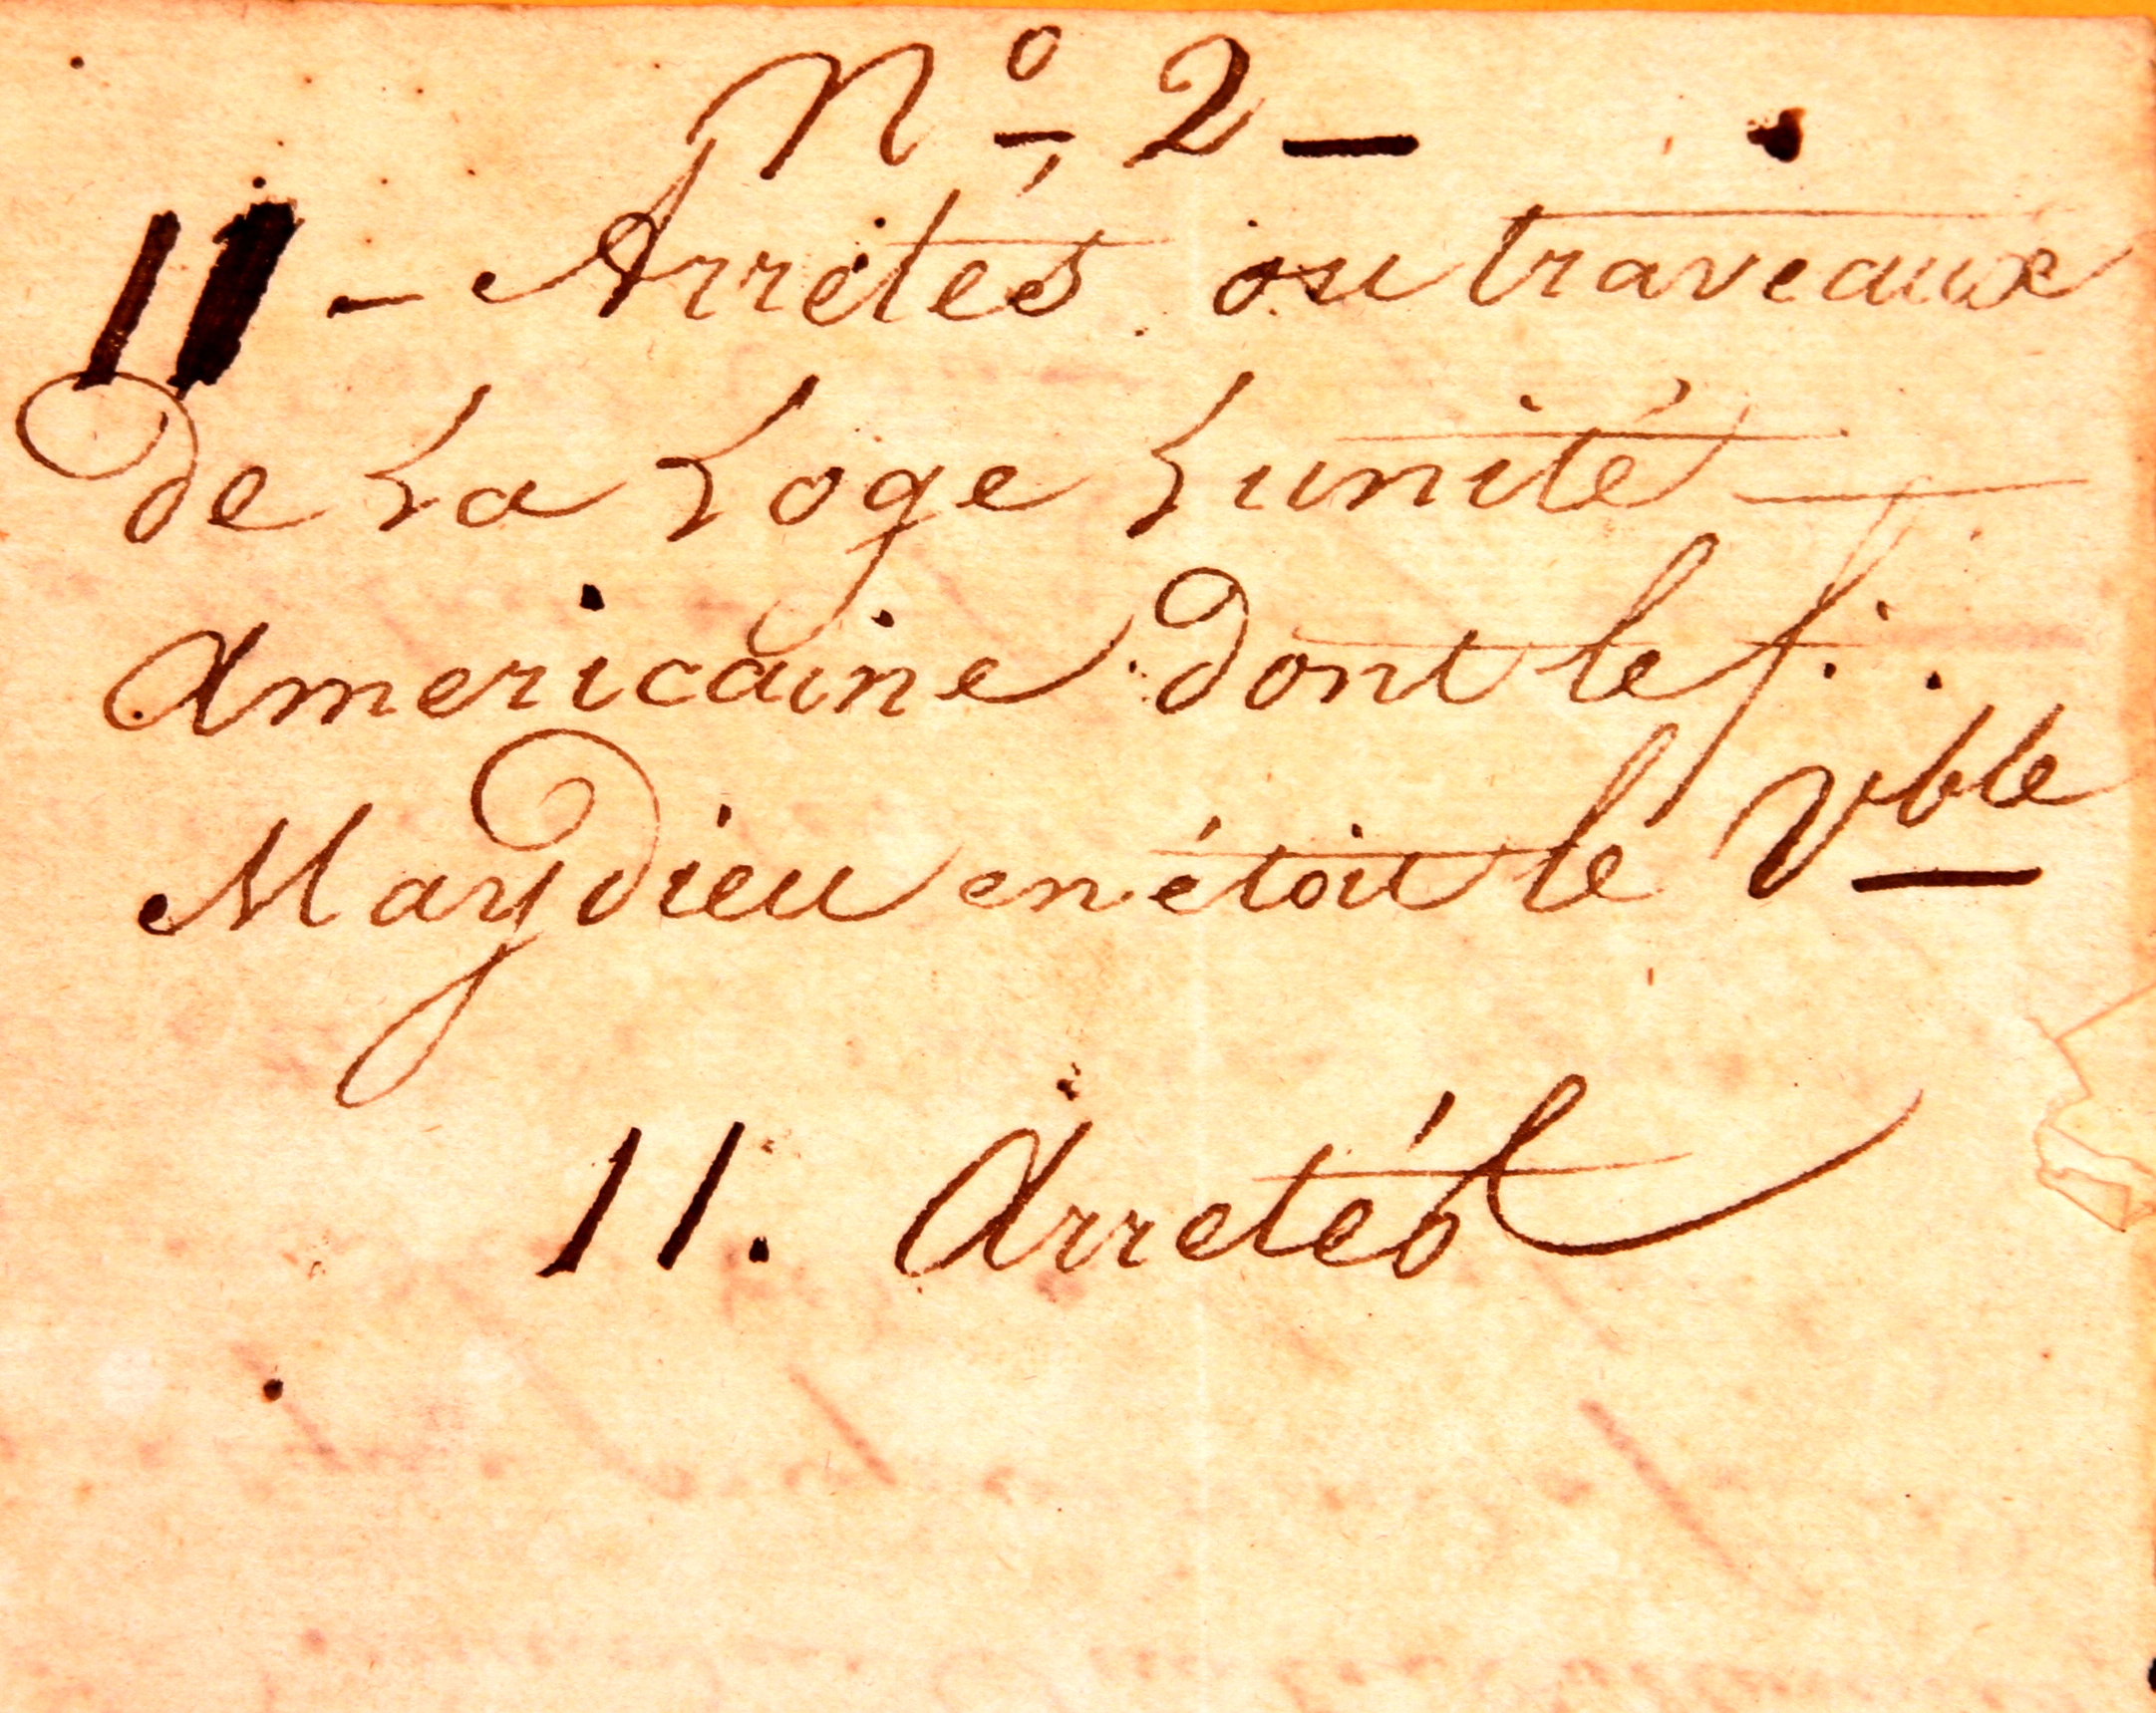 No 2 —
11 - Arretés ou traveaux
de La Loge Lunité —
Americaine dont le f∴
Maydieu en étoit le Vble
11. Arretés